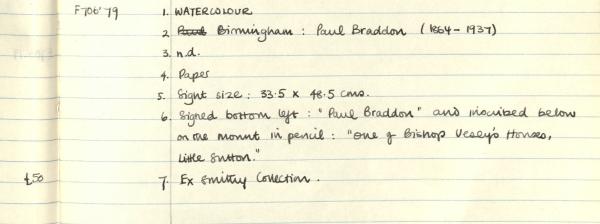 F706'79 1. WATERCOLOUR
2. Paul Birmingham : Paul Braddon (1864-1937)
3. n.d.
4. Paper
5. Sight size : 33.5 x 48.5 cms.
6. Signed bottom left : "Paul Braddon" and inscribed below
on the mount in pencil : "One of Bishop Vesey's Houses,
Little Sutton."
£50 7. Ex Smithy Collection.